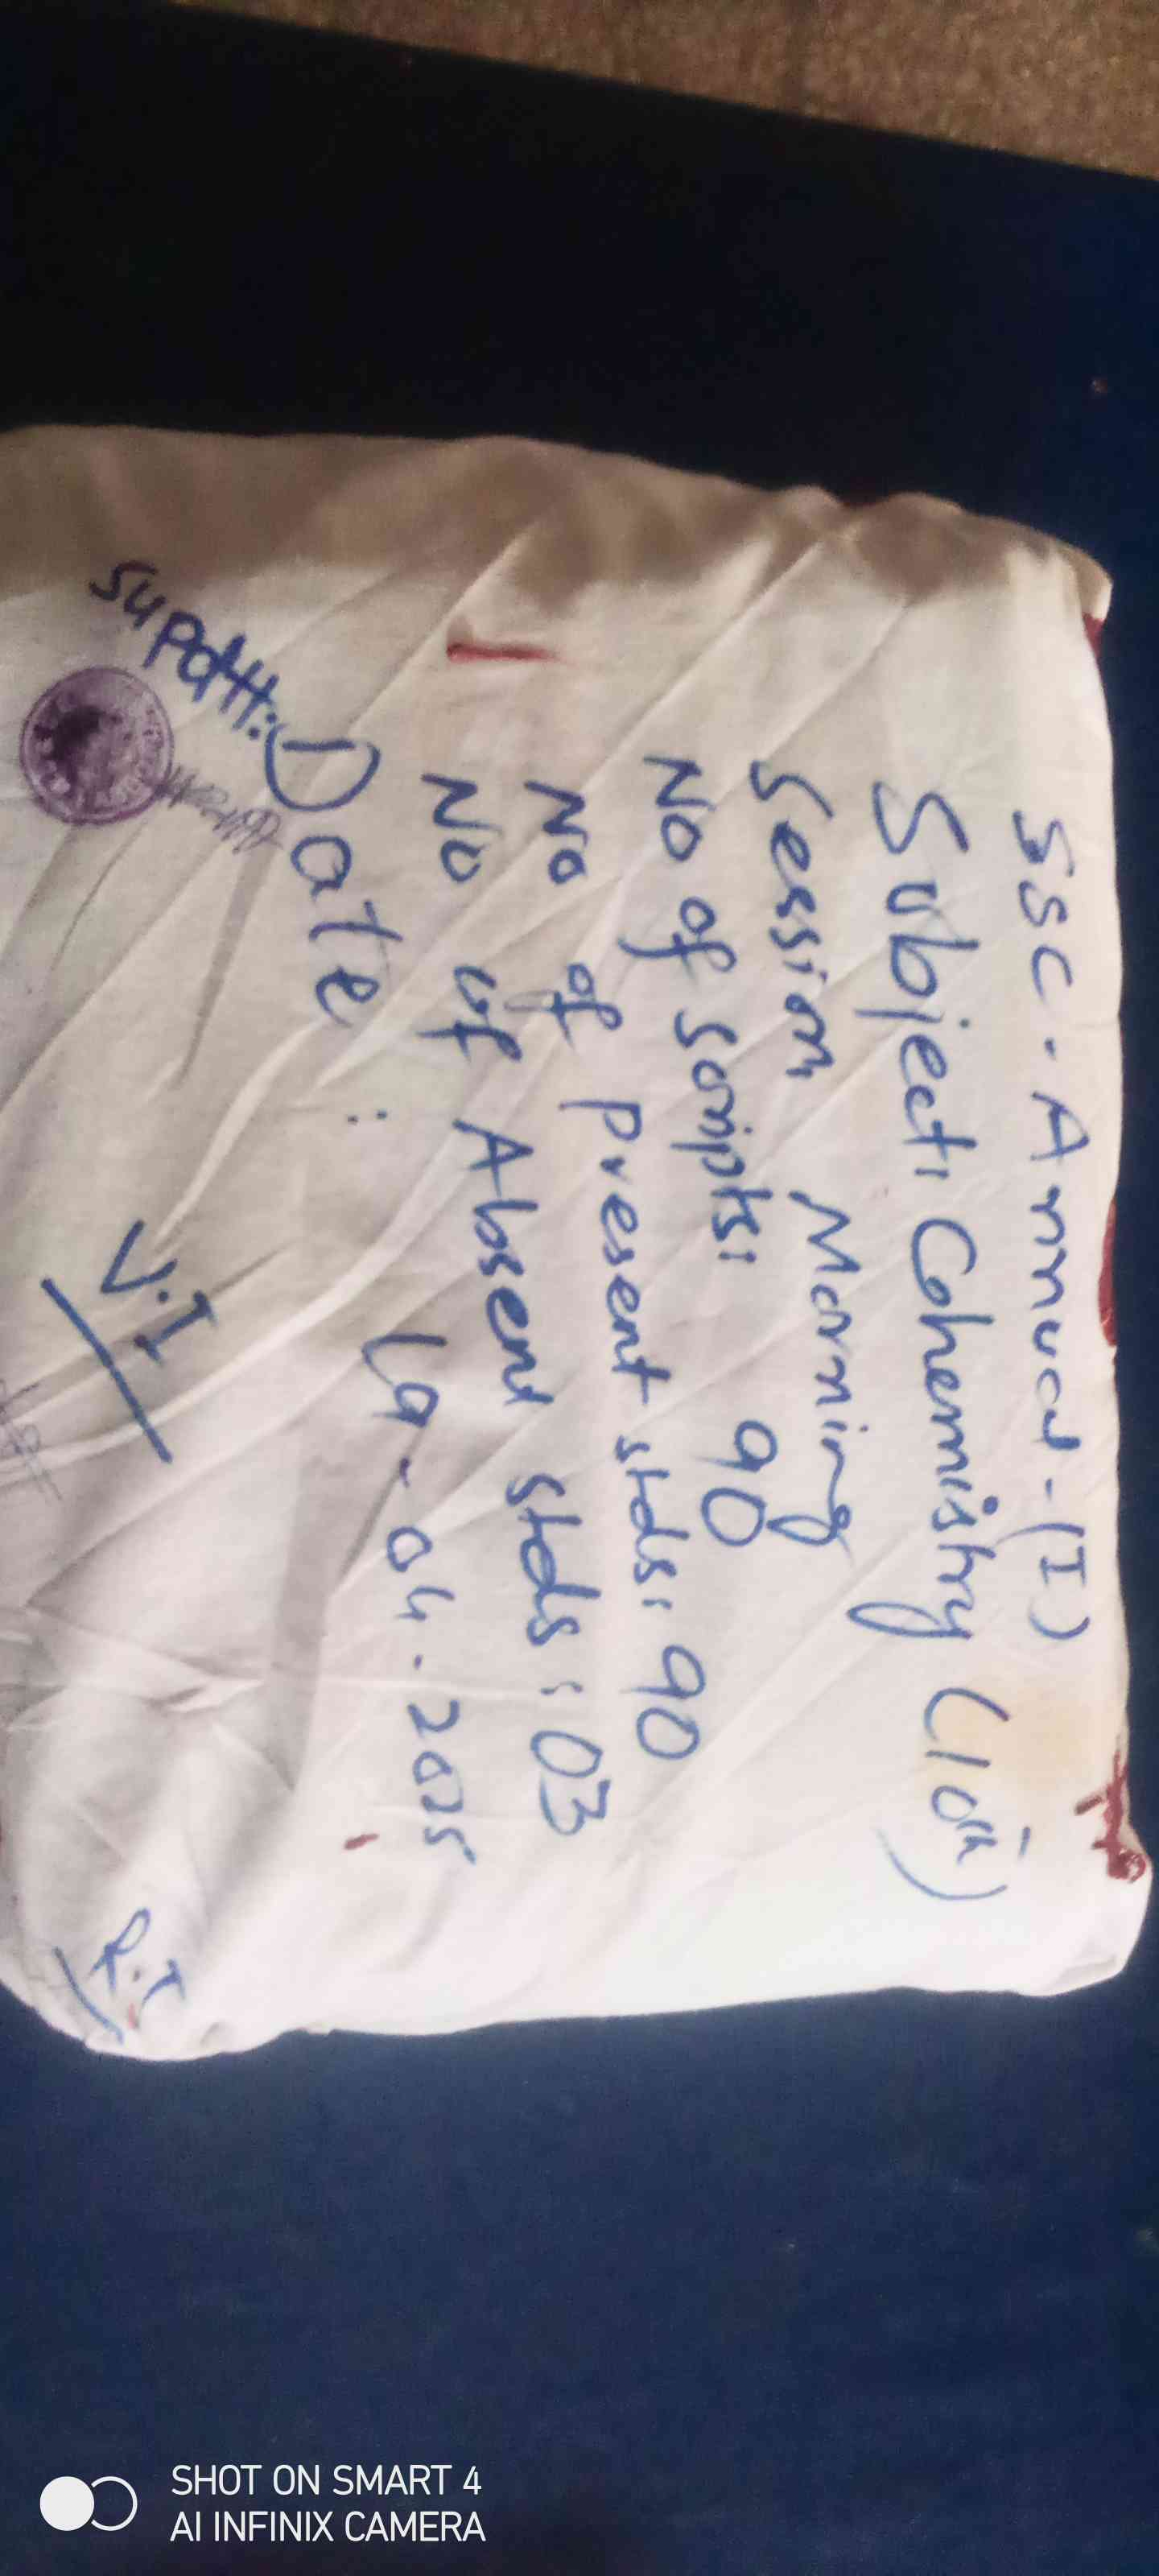 SSC. Annual-(I)
Subject: Cohemistry (10th)
Session Morning
No of scripts: 90
No of present stds: 90
No of Absent stds: 03
Date: 19-04-2025
Supdtt:
V.I
R.I
SHOT ON SMART 4
AI INFINIX CAMERA